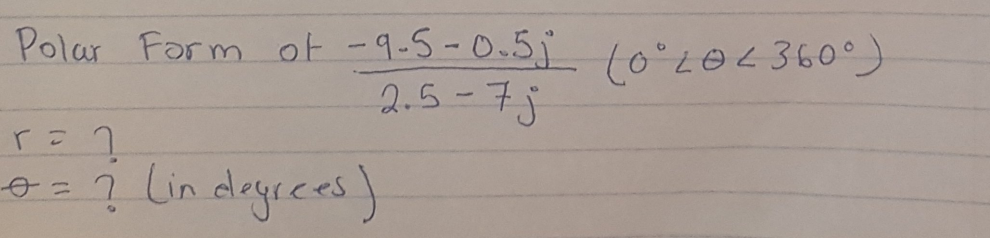 Polar Form of -9.5-0.5j / 2.5-7j (0°<θ<360°)
r = ?
θ = ? (in degrees)